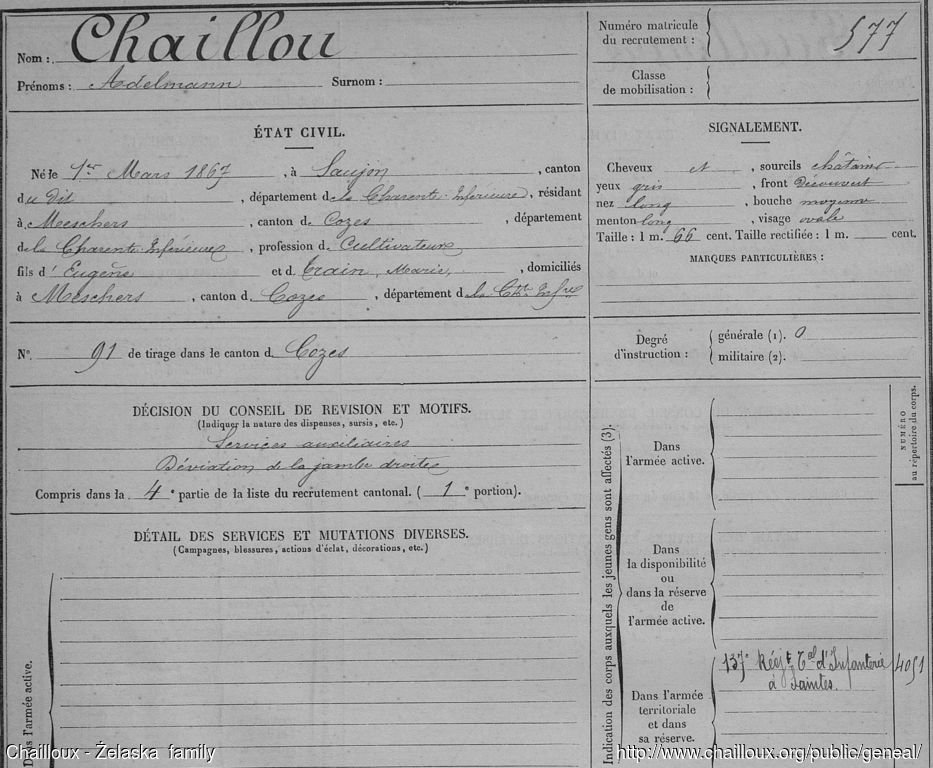 Nom : Chaillou
Prénoms : Adelmann Surnom :
Numéro matricule du recrutement : 577
Classe de mobilisation :
ÉTAT CIVIL.
Né le 1er Mars 1867, à Saujon, canton
du dit, département de la Charente Inférieure, résidant
à Meschers, canton d. Cozes, département
de la Charente Inférieure, profession d. Cultivateur
fils d' Eugène et d. Train, Marie, domiciliés
à Meschers, canton d. Cozes, département d la Chte Infre
SIGNALEMENT.
Cheveux et, sourcils châtains
yeux gris, front découvert
nez long, bouche moyenne
menton long, visage ovale
Taille : 1 m. 66 cent. Taille rectifiée : 1 m. cent.
MARQUES PARTICULIÈRES :
No. 91 de tirage dans le canton d. Cozes
Degré d'instruction :
générale (1). 0
militaire (2).
DÉCISION DU CONSEIL DE REVISION ET MOTIFS.
(Indiquer la nature des dispenses, sursis, etc.)
Services auxiliaires
Déviation de la jambe droite
Compris dans la 4e partie de la liste du recrutement cantonal. ( 1e portion).
DÉTAIL DES SERVICES ET MUTATIONS DIVERSES.
(Campagnes, blessures, actions d'éclat, décorations, etc.)
Dans l'armée active.
Indication des corps auxquels les jeunes gens sont affectés (3).
NUMÉRO
au répertoire du corps.
Dans
l'armée active.
Dans
la disponibilité
ou
dans la réserve
de
l'armée active.
Dans l'armée
territoriale
et dans
sa réserve.
137e Régt Tal d'Infanterie 4051
à Saintes.
Chailloux - Želaska family
http://www.chailloux.org/public/geneal/